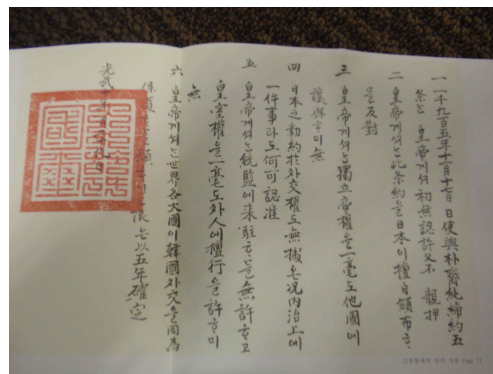 一 一千九百五年十一月十七日 使與朴齊純締約五
條은 皇帝게셔 初無認許又不 親押
二 皇帝게셔는 此条約을 日本이 擅自頒布흠
을 反對
三 皇帝게셔는 獨立帝權을 一毫도 他國에
讓與흠이 無
四 日本之勒約於外交權도 無據온 况內治上에
一件事라도 何可認准
五 皇帝게셔는 統監에 来駐흠을 無許흐고
皇室權을 一毫도 外人에 擅行을 許흠이
無
六 皇帝게셔는 世界各大國이 韓國外交을 同為
保護 限은 以五年確定
光武十年